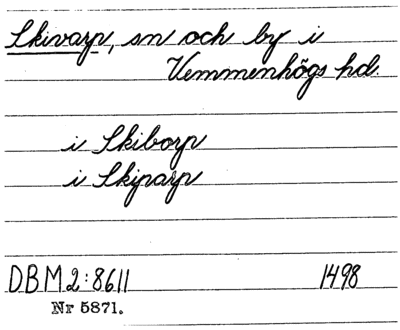 Skivarp, sn och by i
Vemmenhögs hd.
i Skiborp
i Skiparp
DBM2:8611 1498
Nr 5871.